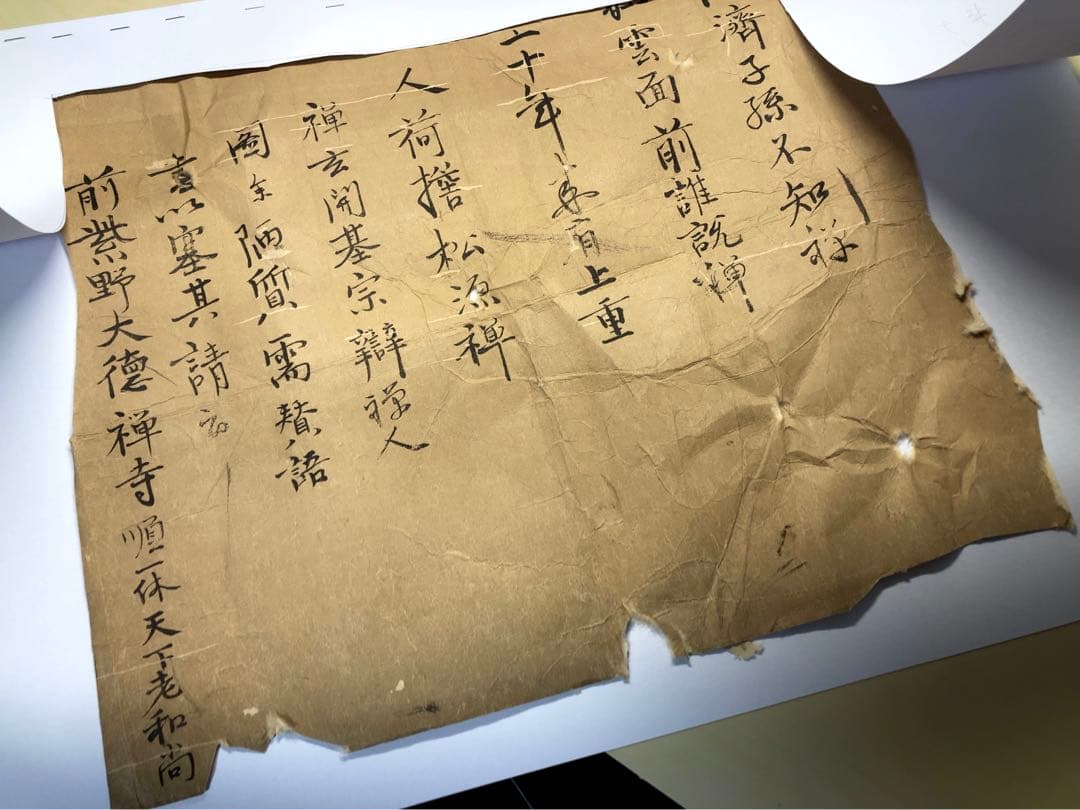 濟子孫不知禅
雲面前誰說禅
十年来肩上重
人荷擔松源禅
禅玄開基宗辯禅人
圖余陋質需賛語
書以塞其請云
前紫野大德禅寺順一休天下老和尚